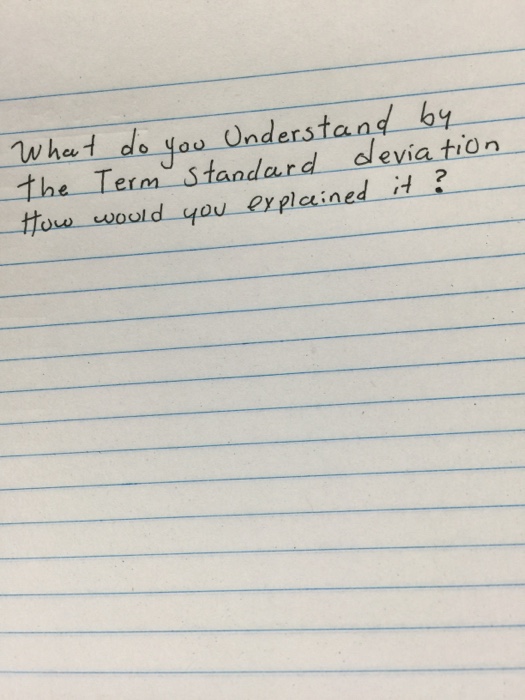 What do you Understand by
the Term Standard deviation
How would you explained it ?